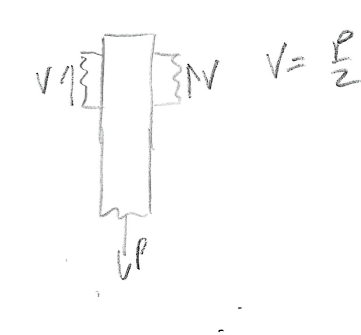 V
V
V = P/2
P